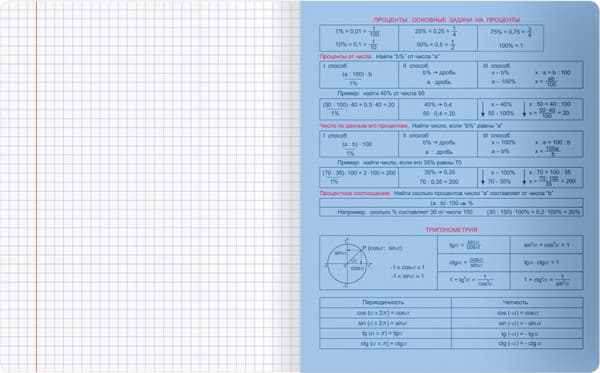 ПРОЦЕНТЫ. ОСНОВНЫЕ ЗАДАЧИ НА ПРОЦЕНТЫ
1% = 0,01 = 1/100 25% = 0,25 = 1/4 75% = 0,75 = 3/4
10% = 0,1 = 1/10 50% = 0,5 = 1/2 100% = 1
Проценты от числа. Найти "b%" от числа "a"
I способ II способ III способ
(a : 100) · b b% → дробь x – b% x : a = b : 100
1% a · дробь a – 100% x = ab/100
Пример: найти 40% от числа 50
(50 : 100) · 40 = 0,5 · 40 = 20 40% → 0,4 x – 40% x : 50 = 40 : 100
1% 50 · 0,4 = 20 50 - 100% x = 50·40/100 = 20
Число по данным его процентам. Найти число, если "b%" равны "a"
I способ II способ III способ
(a : b) · 100 b% → дробь x – 100% x : a = 100 : b
1% a : дробь a – b% x = 100a/b
Пример: найти число, если его 35% равны 70
(70 : 35) · 100 = 2 · 100 = 200 35% → 0,35 x – 100% x : 70 = 100 : 35
1% 70 : 0,35 = 200 70 - 35% x = 70·100/35 = 200
Процентное соотношение. Найти сколько процентов число "a" составляет от числа "b"
(a : b) · 100 %
Например: сколько % составляет 30 от числа 150 (30 : 150) · 100% = 0,2 · 100% = 20%
ТРИГОНОМЕТРИЯ
P (cosα; sinα)
sinα
cosα
-1 ≤ cosα ≤ 1
-1 ≤ sinα ≤ 1
tgα = sinα/cosα sin²α + cos²α = 1
ctgα = cosα/sinα tgα · ctgα = 1
1 + tg²α = 1/cos²α 1 + ctg²α = 1/sin²α
Периодичность Четность
cos (α ± 2π) = cosα cos (-α) = cosα
sin (α ± 2π) = sinα sin (-α) = - sinα
tg (α ± π) = tgα tg (-α) = - tgα
ctg (α ± π) = ctgα ctg (-α) = - ctgα